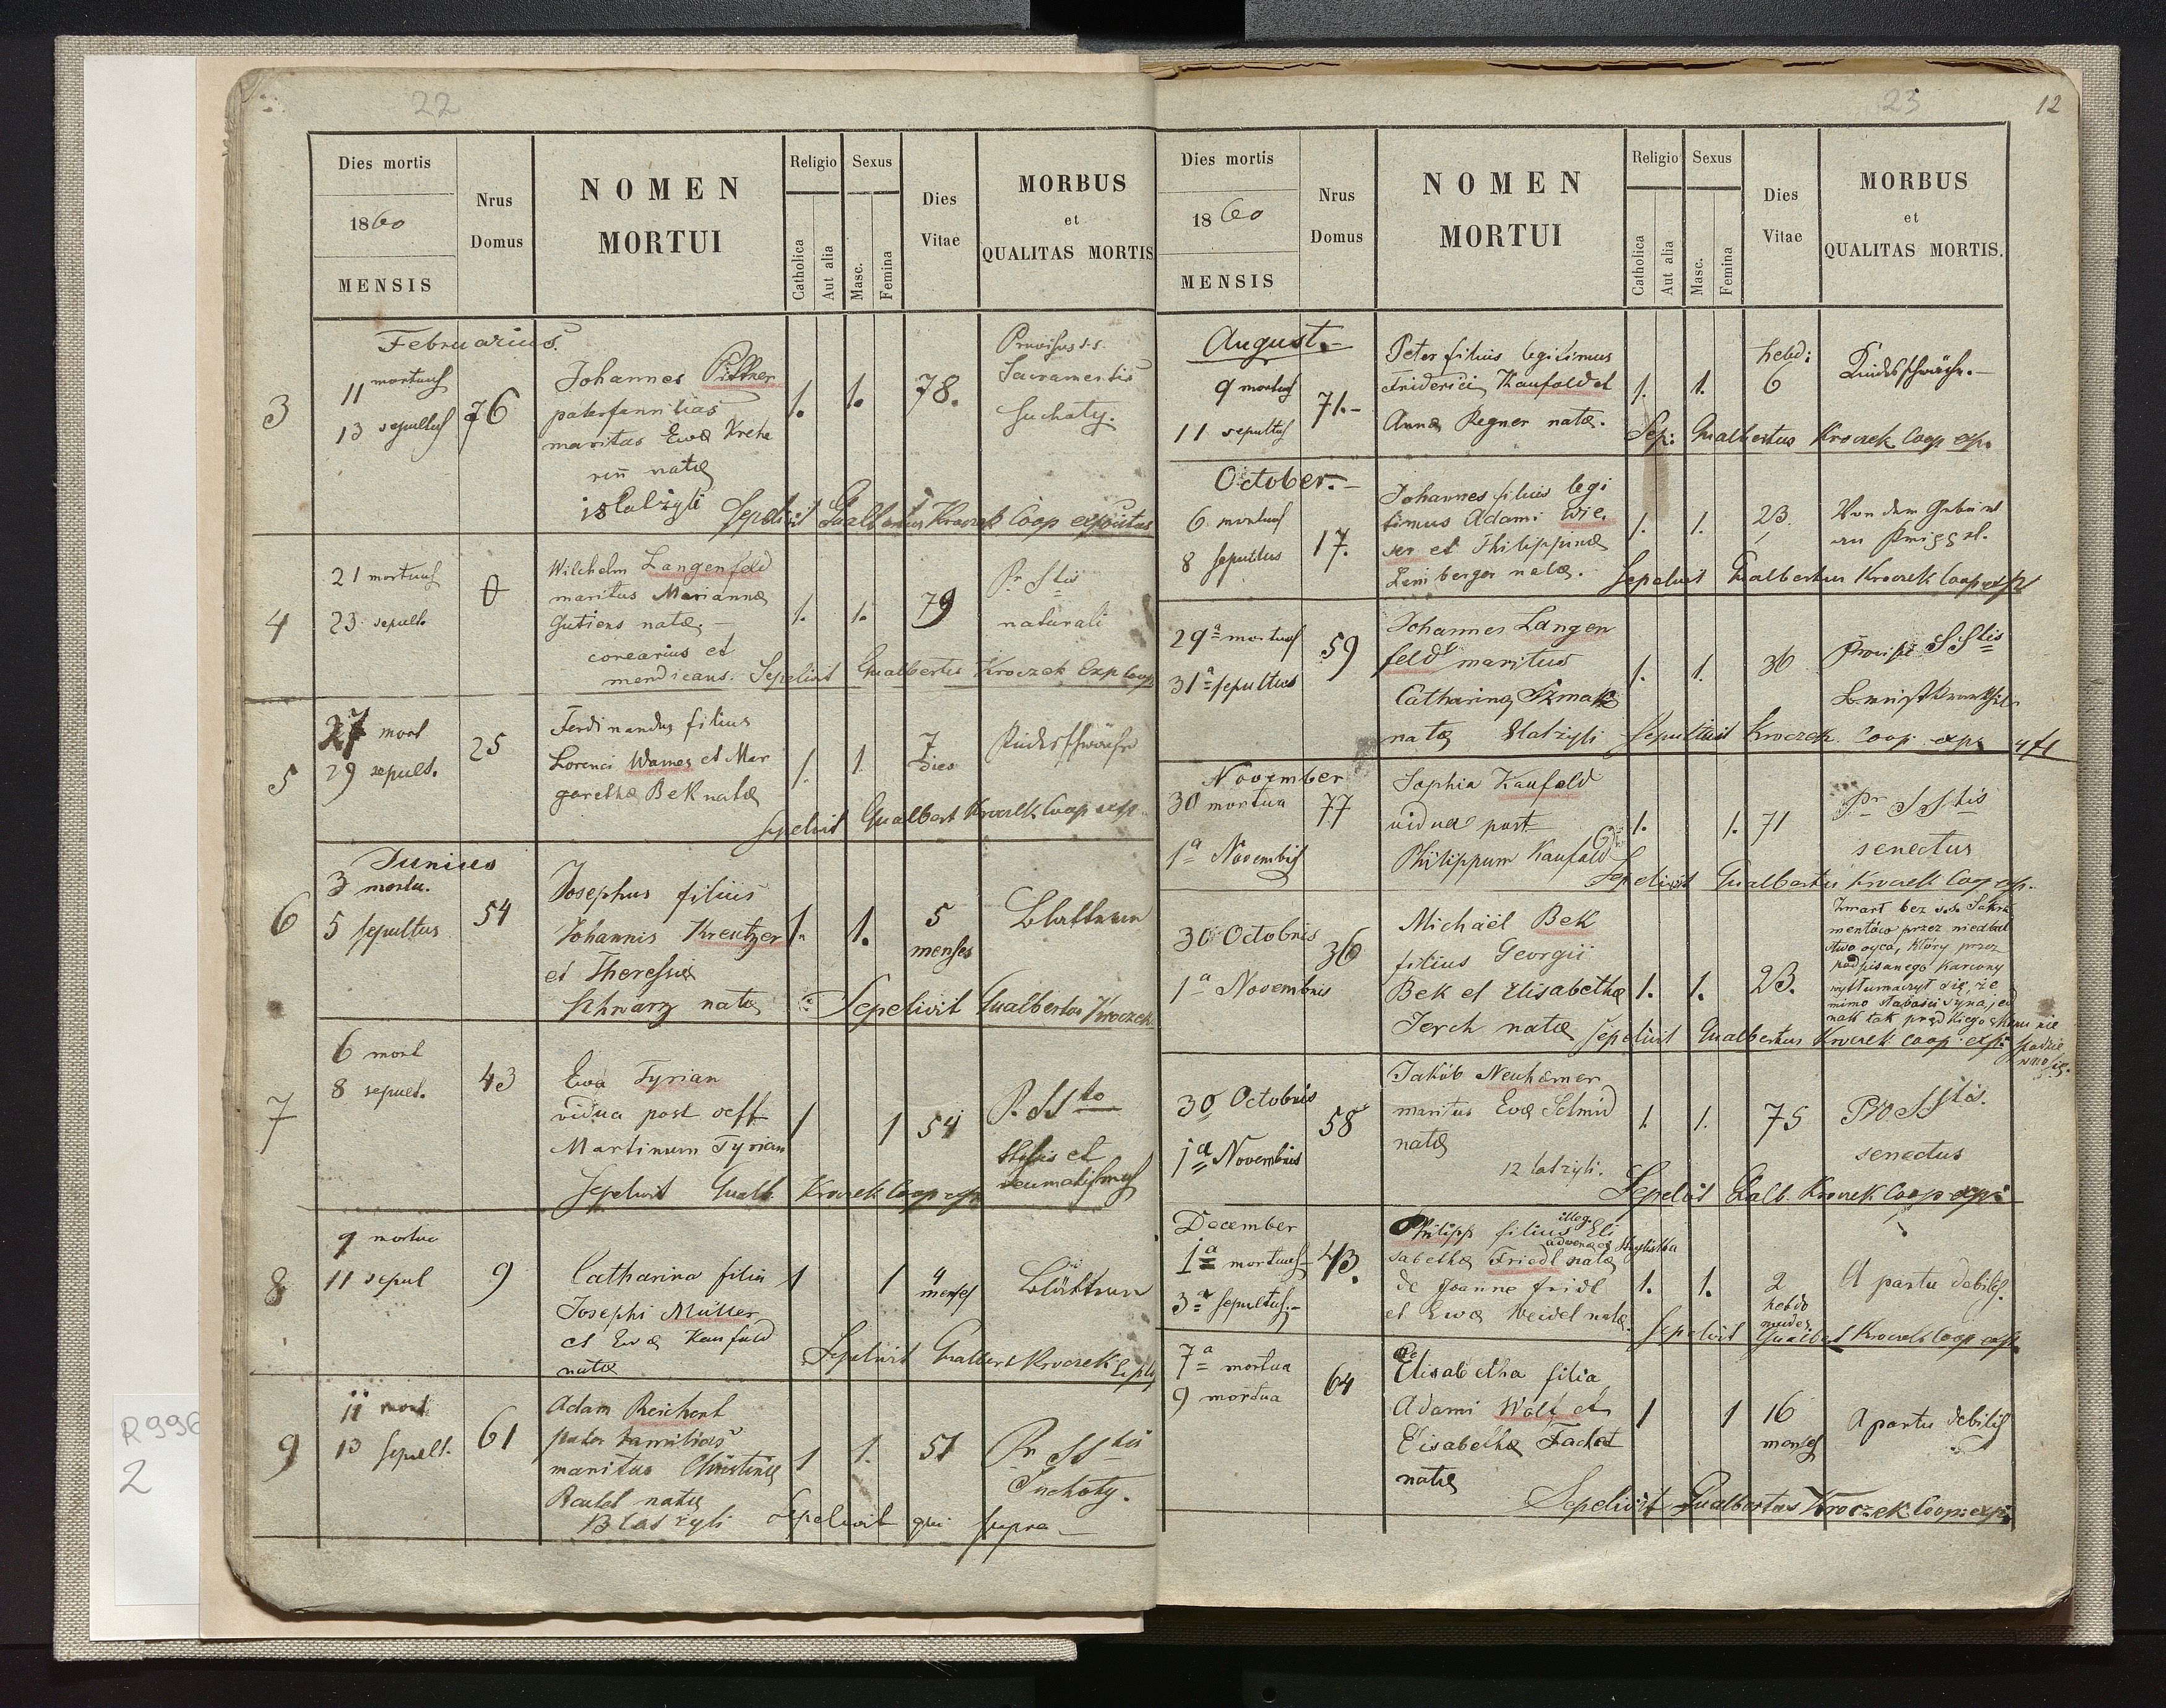 22
Dies mortis
1860
MENSIS
Nrus
Domus
NOMEN
MORTUI
Religio
Catholica
Aut alia
Sexus
Masc.
Femina
Dies
Vitae
MORBUS
et
QUALITAS MORTIS
Februarius.
3
11 mortuus
13 sepultus
76
Johannes Pittner
paterfamilias
maritus Ewa
natae
1.
1.
78.
Provisus s.s.
Sacramentis
Suchoty.
Sepelivit Gualbertus Kroczek Coop expositus
4
21 mortuus
23 sepult.
Wilchelm Langenfeld
maritus Mariannae
Gutiens natae
et
mendicans.
1.
1.
79
Pr. Stis
naturali
Sepelivit Gualbertus Kroczek Exp Coop
5
27 mort
29 sepult.
25
Ferdinandus filius
Lorenci Warnes et Mar
garethae Bek natae
1.
1
7
dies
Sepelivit Gualbert Kroczek Coop exp.
Junius
6
3 mortu.
5 sepultus
54
Josephus filius
Johannis Kreutzer
et Theresiae
Schwarz natae
1.
1.
5
menses
Blattern
Sepelivit Gualbertus Kroczek
7
6 mort
8 sepult.
43
Ewa Tyrian
vidua post
Martinum Tyrian
1
1
54
P. SSto
et
reumatismus
Sepelivit Gualb. Kroczek Coop exp
8
9 mortua
11 sepul
9
Catharina filia
Josephi Müller
et Ewa Kaufeld
natae
1
1
4
menses
Blättern
Sepelivit Gualbert Kroczek
9
11 mort
13 sepult.
61
Adam Reichert
pater familias
maritus Christinae
natae
1
1.
51
Pr SStis
Suchoty.
Sepelivit qui supra
23
12
Dies mortis
1860
MENSIS
Nrus
Domus
NOMEN
MORTUI
Religio
Catholica
Aut alia
Sexus
Masc.
Femina
Dies
Vitae
MORBUS
et
QUALITAS MORTIS.
August.
9 mortuus
11 sepultus
71.
Peter filius legitimus
Friderici Kaufold et
Anna Regner natae.
1.
1.
hebd:
6
Sep: Gualbertus Kroczek Coop exp.
October.
6 mortuus
8 sepultus
17.
Johannes filius legi
timus Adami Wie
ser et Philippinae
Lemberger natae.
1.
1.
23.
Von dem
Sepelivit Gualbertus Kroczek Coop exp
29a mortuus
31a sepultus
59
Johannes Langen
feld maritus
Catharina
natae
1.
1.
36
SStis
Sepelivit Kroczek Coop exp
November
30 mortua
1a Novembris
77
Sophia Kaufold
vidua post
Philippum Kaufold
1.
1.
71
Pr SStis
senectus
Sepelivit Gualbertus Kroczek Coop exp.
30 Octobris
1a Novembris
36
Michäel Bek
filius Georgii
Bek et Elisabetha
Jerch natae
1.
1.
23.
Zmarł bez s.s. Sakra
mentów przez niedbal
stwo ojca, który przez
podpisanego karcony
wytłumaczył się, że
mimo słabości syna, jed
nak tak prędkiego skonu nie
spodzie
wał się.
Sepelivit Gualbertus Kroczek Coop exp.
30 Octobris
1a Novembris
58
Jakób Neuhamer
maritus Ewa Schmid
natae
1.
1.
75
Pro SStis.
senectus
Sepelivit Galb. Kroczek Coop exp.
December
1a mortuus
3a sepultus.
43.
Philipp filius illeg. Eli
sabetha Friedl natae
de Joanne Fridl
et Ewa Weidel natae.
1.
1.
2
hebdo
mades
A partu debilis.
Sepelivit Gualbert Kroczek Coop exp.
7a mortua
9 mortua
64
Elisabetha filia
Adami Wolf et
Elisabetha
natae
1
1
16
menses
A partu debilis
Sepelivit Gualbertus Kroczek Coop: exp.
R996
2